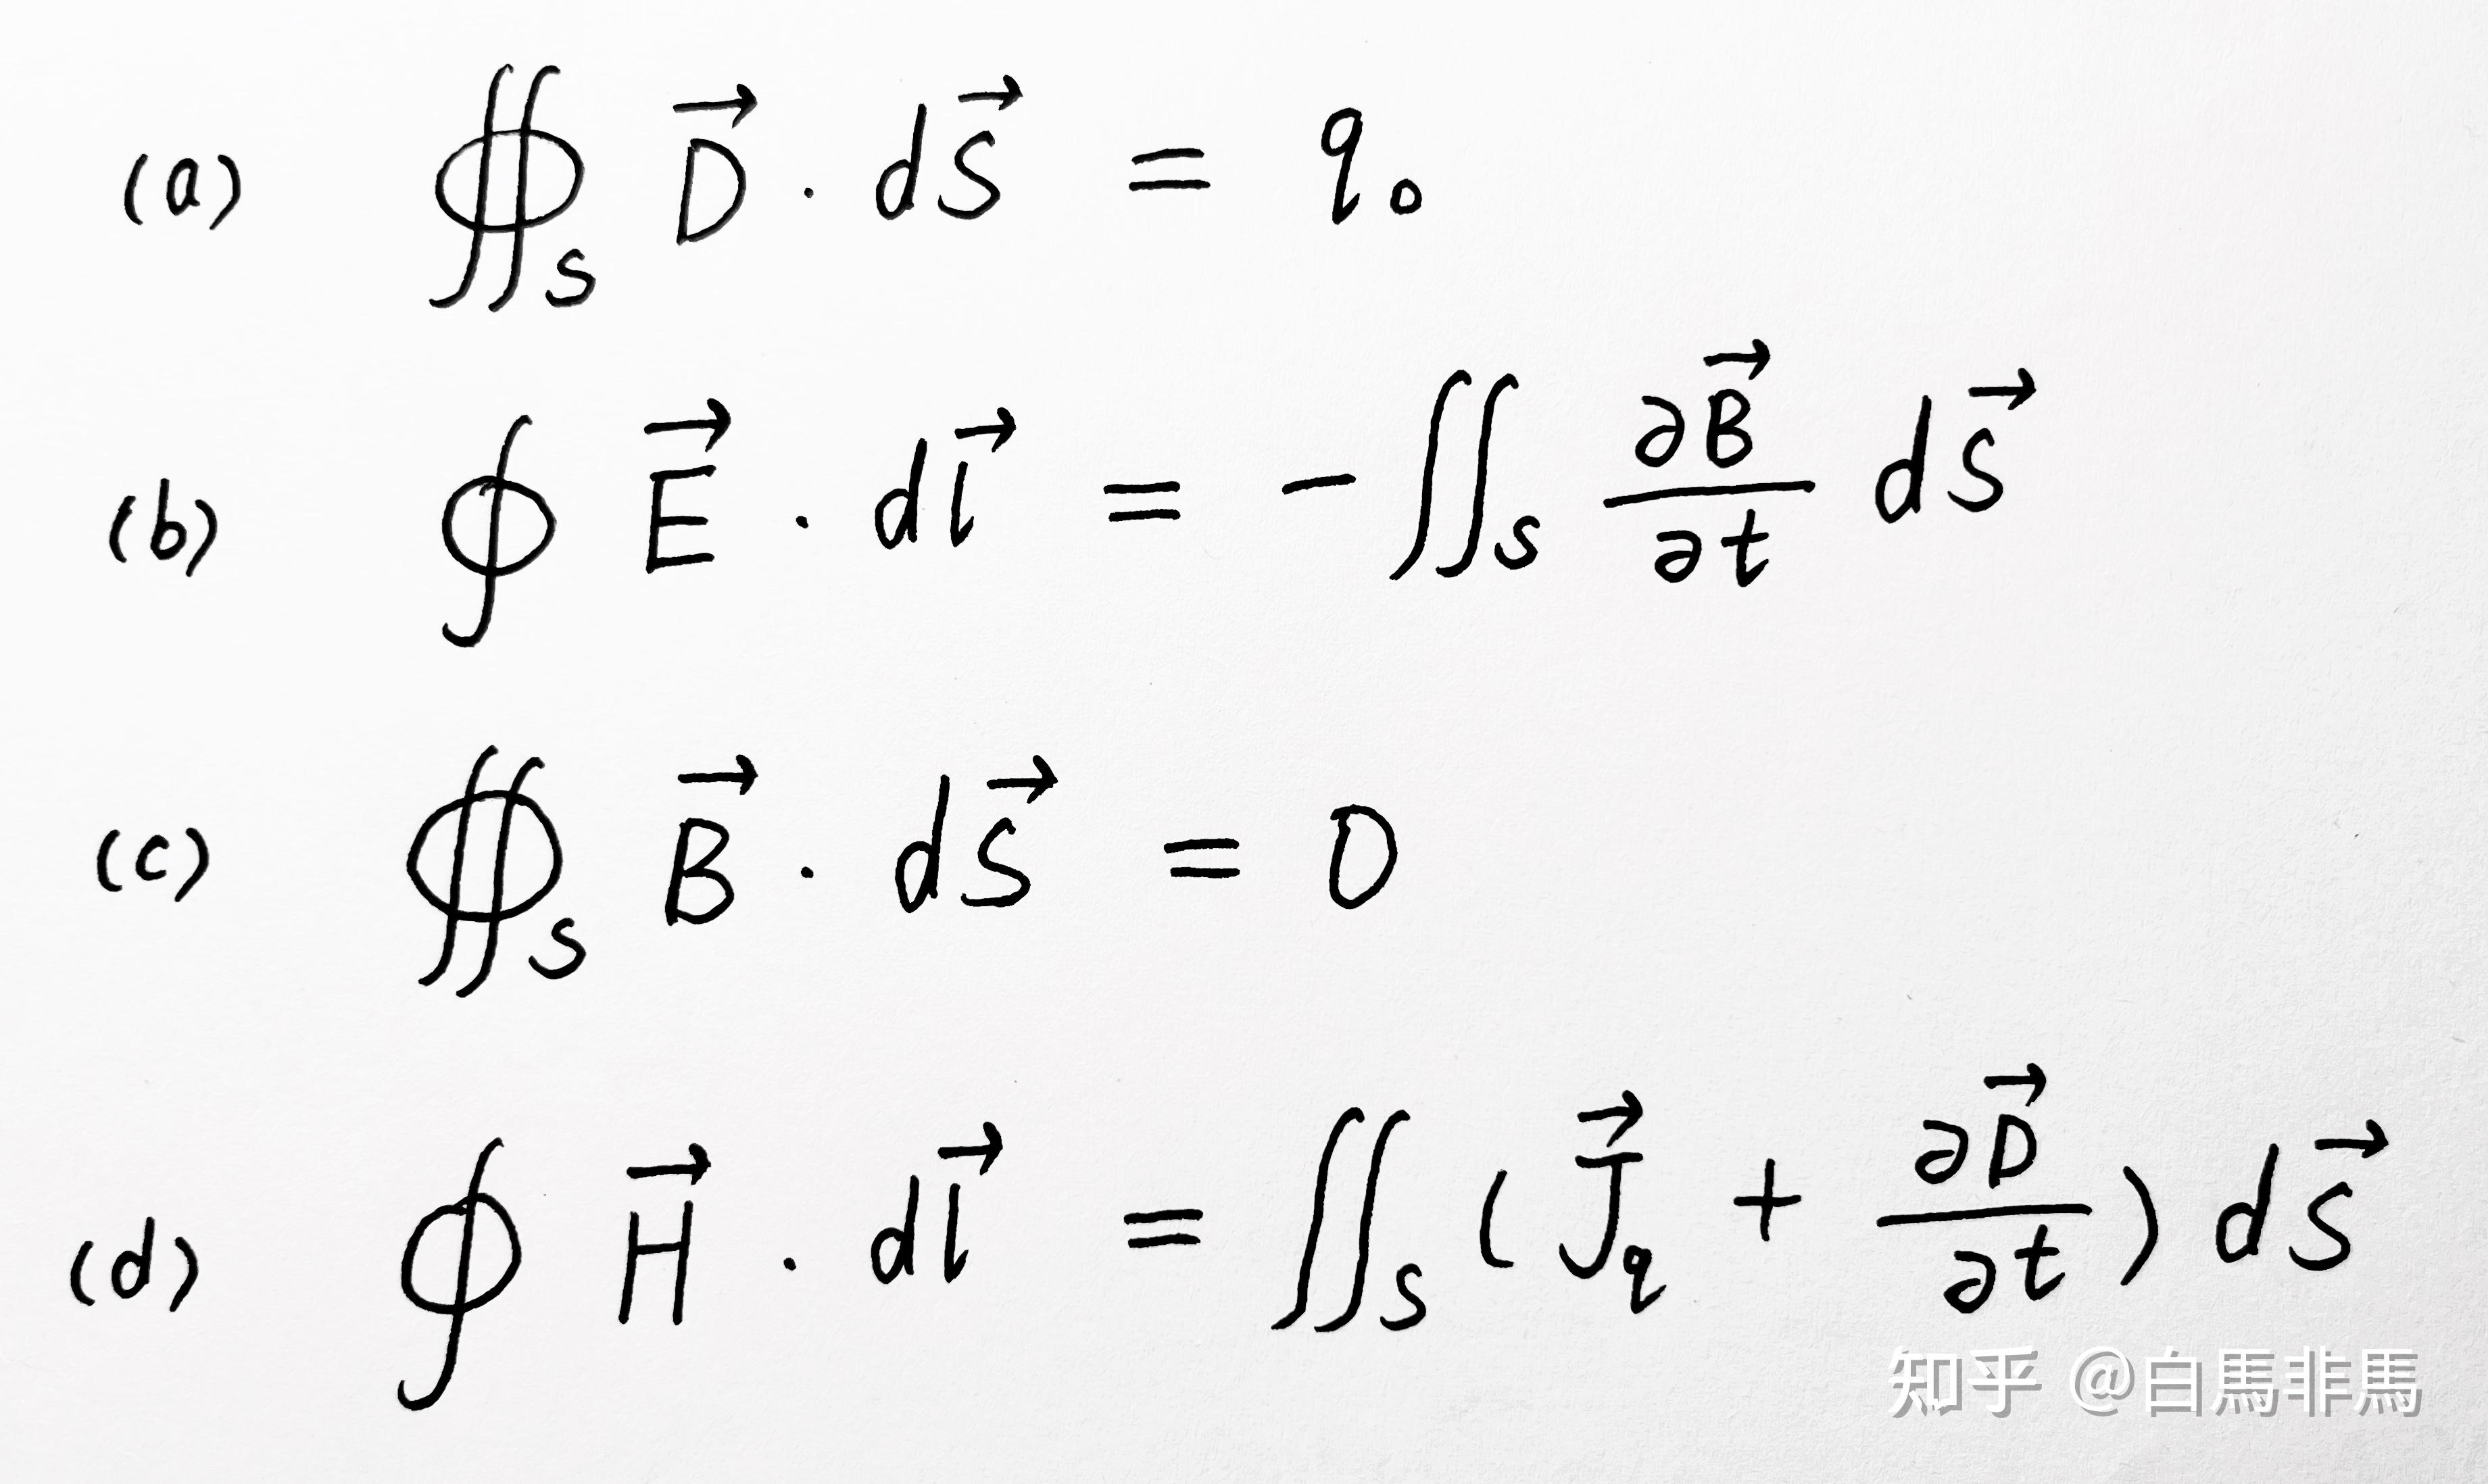 (a) ∯_S D⃗ · dS⃗ = q₀
(b) ∮ E⃗ · dl⃗ = -∬_S ∂B⃗/∂t dS⃗
(c) ∯_S B⃗ · dS⃗ = 0
(d) ∮ H⃗ · dl⃗ = ∬_S (J⃗_q + ∂D⃗/∂t) dS⃗
知乎 @白馬非馬